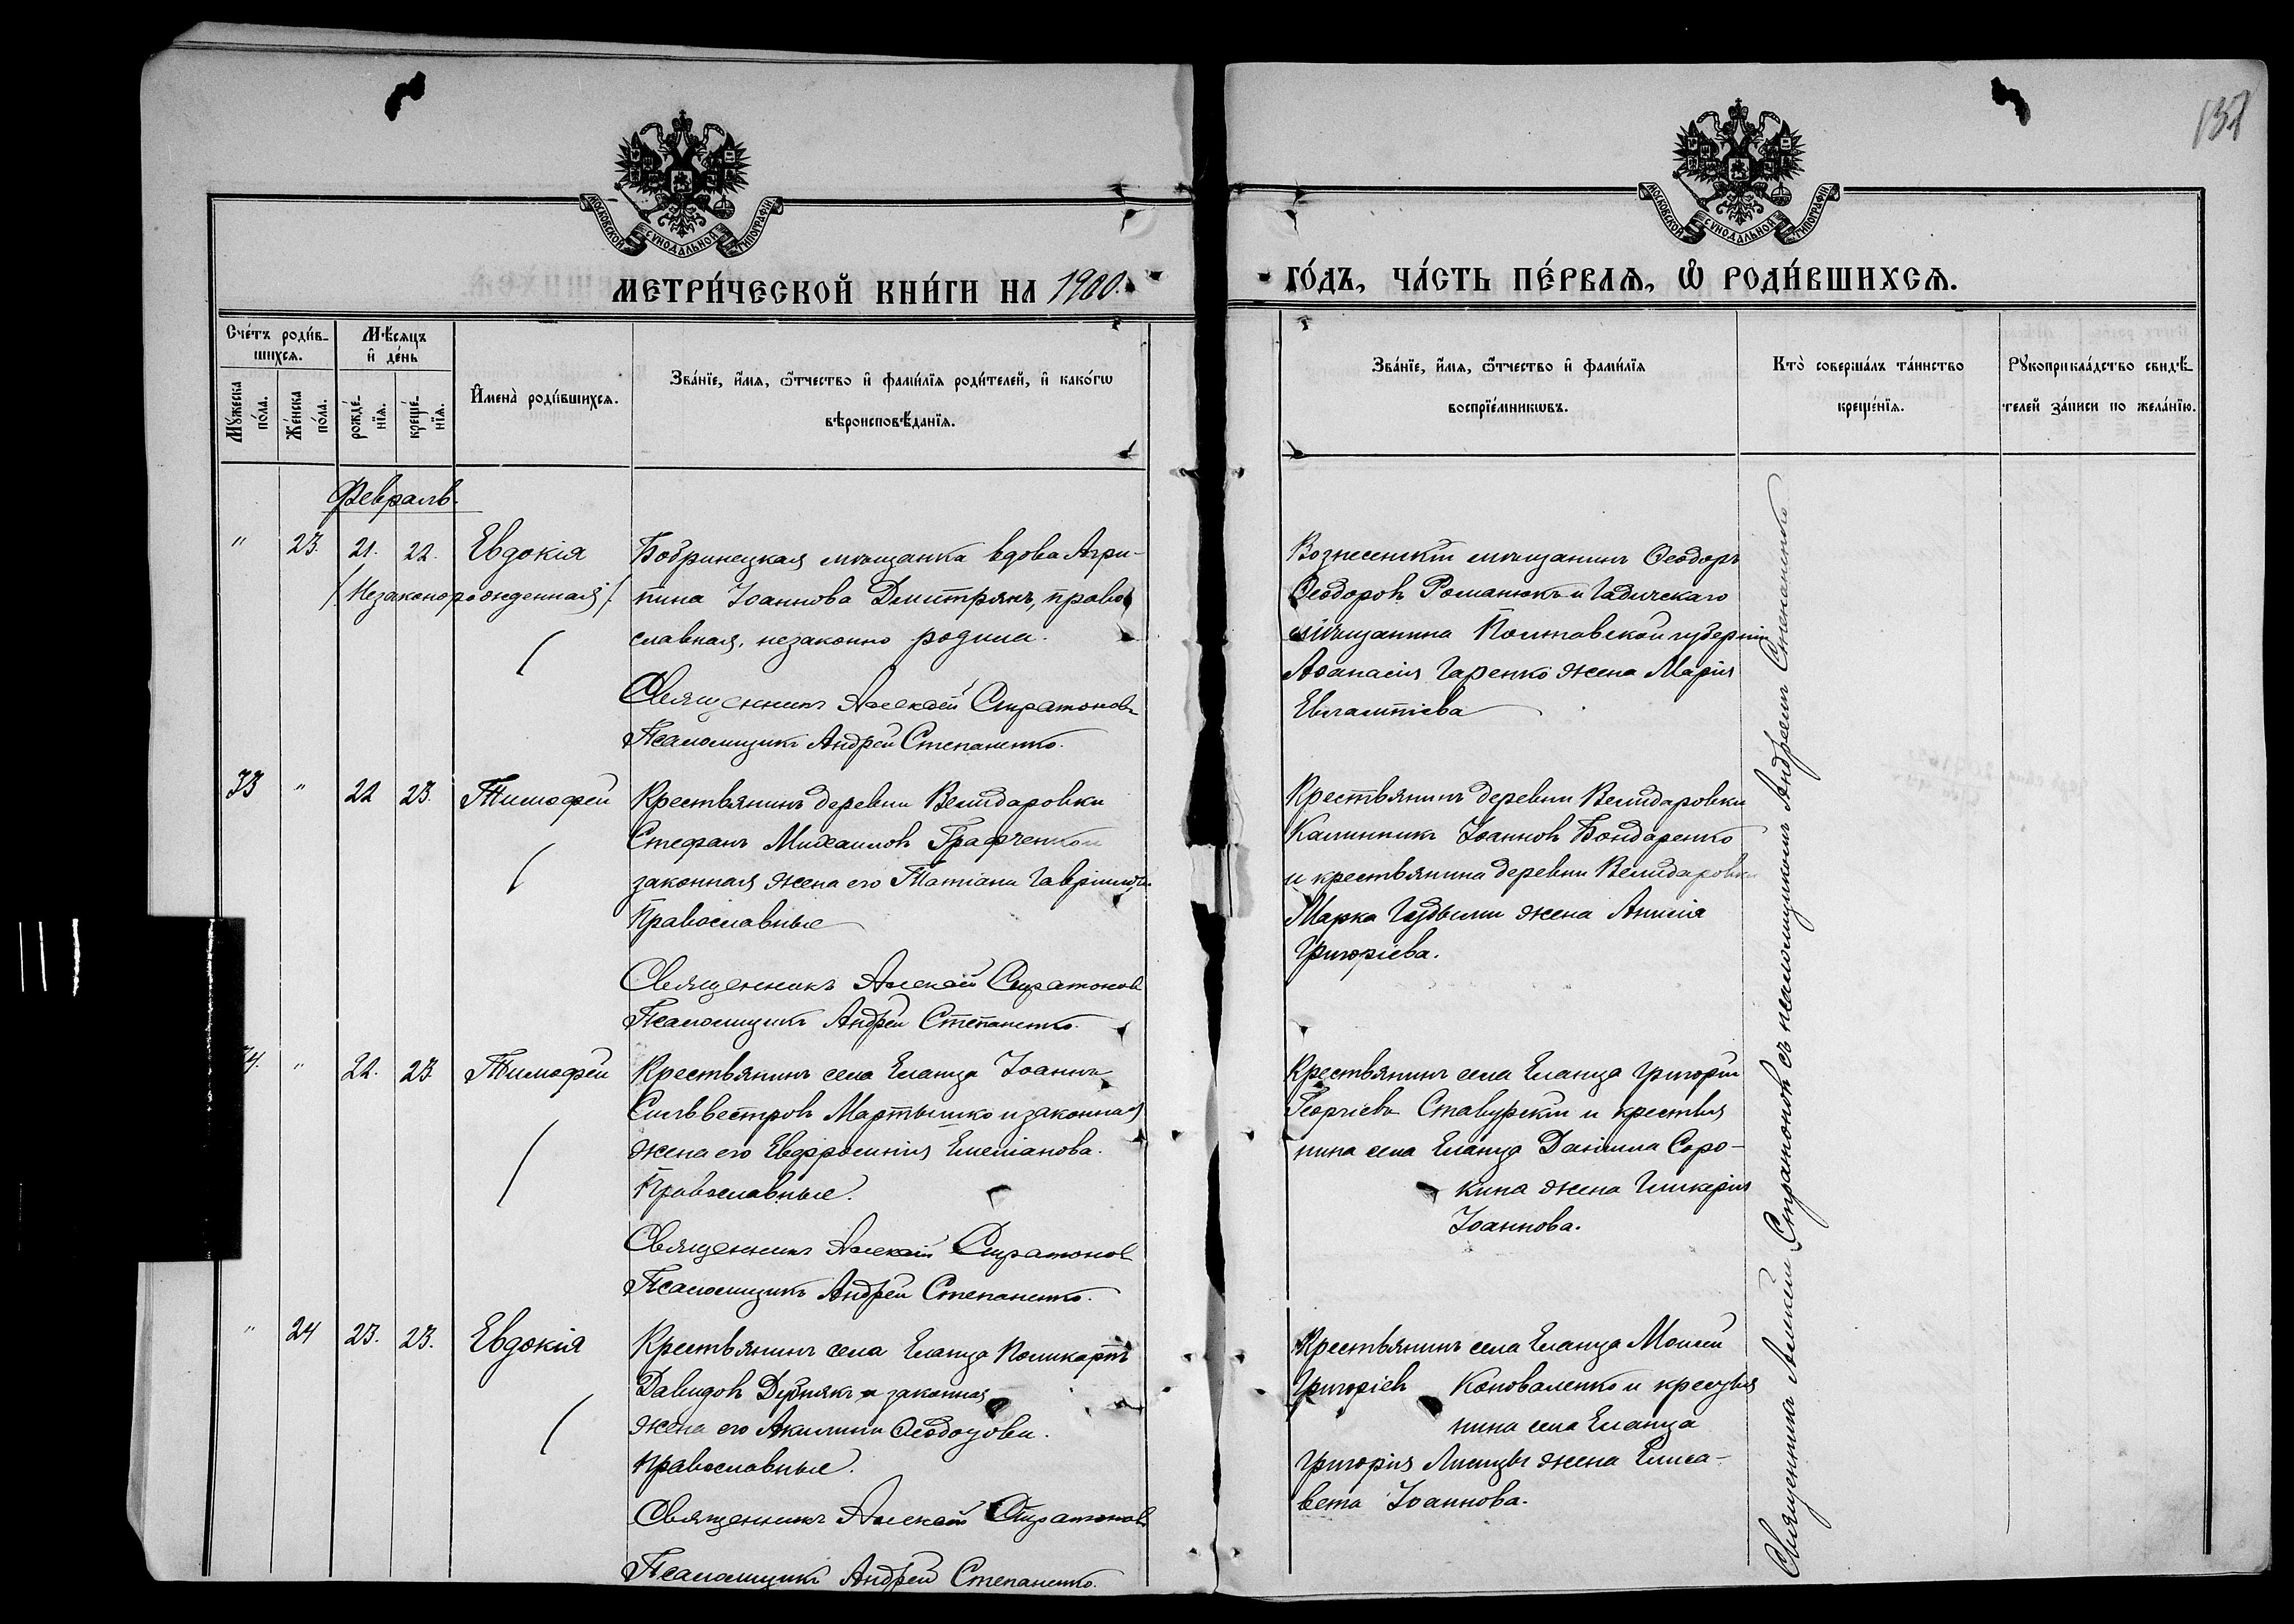 137
МОСКОВСКОЙ СѴНОДАЛЬНОЙ ТИПОГРАФІИ
МОСКОВСКОЙ СѴНОДАЛЬНОЙ ТИПОГРАФІИ
МЕТРИ́ЧЕСКОЙ КНИ́ГИ НА 1900.
ГО́ДЪ, ЧА́СТЬ ПЕ́РВАѦ, Ѽ РОДИ́ВШИХСѦ.
Сче́тъ роди́в-
шихсѧ.
Мꙋ́жеска по́ла.
Же́нска по́ла.
Мѣ́сѧцъ
и҆ де́нь
рожде́-
нїѧ.
креще́-
нїѧ.
И҆мена̀ роди́вшихсѧ.
Зва́нїе, и҆́мѧ, ѻ҆́тчество и҆ фами́лїѧ роди́телей, и҆ како́гѡ
вѣроисповѣ́данїѧ.
Зва́нїе, и҆́мѧ, ѻ҆́тчество и҆ фами́лїѧ
воспрїе́мникѡвъ.
Кто̀ соверша́лъ та́инство
креще́нїѧ.
Рꙋкоприкла́дство свидѣ́-
телей за́писи по жела́нїю.
Февраль.
" 23. 21. 22. Евдокія
/Незаконорожденная/.
Бобринецкая мѣщанка вдова Агри-
пина Іоаннова Дмитрякъ, право
славная, незаконно родила.
Священникъ Алексѣй Стратоновъ
Псаломщикъ Андрей Степаненко.
Вознесенскій мѣщанинъ Ѳеодоръ
Ѳеодоровъ Романюкъ и Гадичскаго
мѣщанина Полтавской губерніи
Аѳанасія Гаренко жена Марія
Евлампіева
33 " 22 23. Тимофей
Крестьянинъ деревни Велидаровки
Стефанъ Михаиловъ Графченко и
законная жена его Татіана Гавріилова
Православные
Священникъ Алексѣй Стратоновъ
Псаломщикъ Андрей Степаненко.
Крестьянинъ деревни Велидаровки
Калинникъ Іоанновъ Бондаренко
и крестьянина деревни Велидаровки
Марка жена Анисія
Григоріева.
34. " 22. 23 Тимофей
Крестьянинъ села Еланца Іоаннъ
Сильвестровъ Мартынко и законная
жена его Евфросинія Емеліанова.
Православные.
Священникъ Алексѣй Стратоновъ
Псаломщикъ Андрей Степаненко.
Крестьянинъ села Еланца Григорій
Георгіевъ Ставурскій и крестья
нина села Еланца Даніила Соро-
кина жена Гликерія
Іоаннова.
" 24 23. 23. Евдокія
Крестьянинъ села Еланца Поликарпъ
Давидовъ Дубнякъ и законная
жена его Акилина Ѳеодотова.
православные.
Священникъ Алексѣй Стратоновъ
Псаломщикъ Андрей Степаненко.
Крестьянинъ села Еланца Моисей
Григоріевъ Коноваленко и крестья
нина села Еланца
Григорія Лисицы жена Елиса-
вета Іоаннова.
Священникъ Алексѣй Стратоновъ съ псаломщикомъ Андреемъ Степаненко